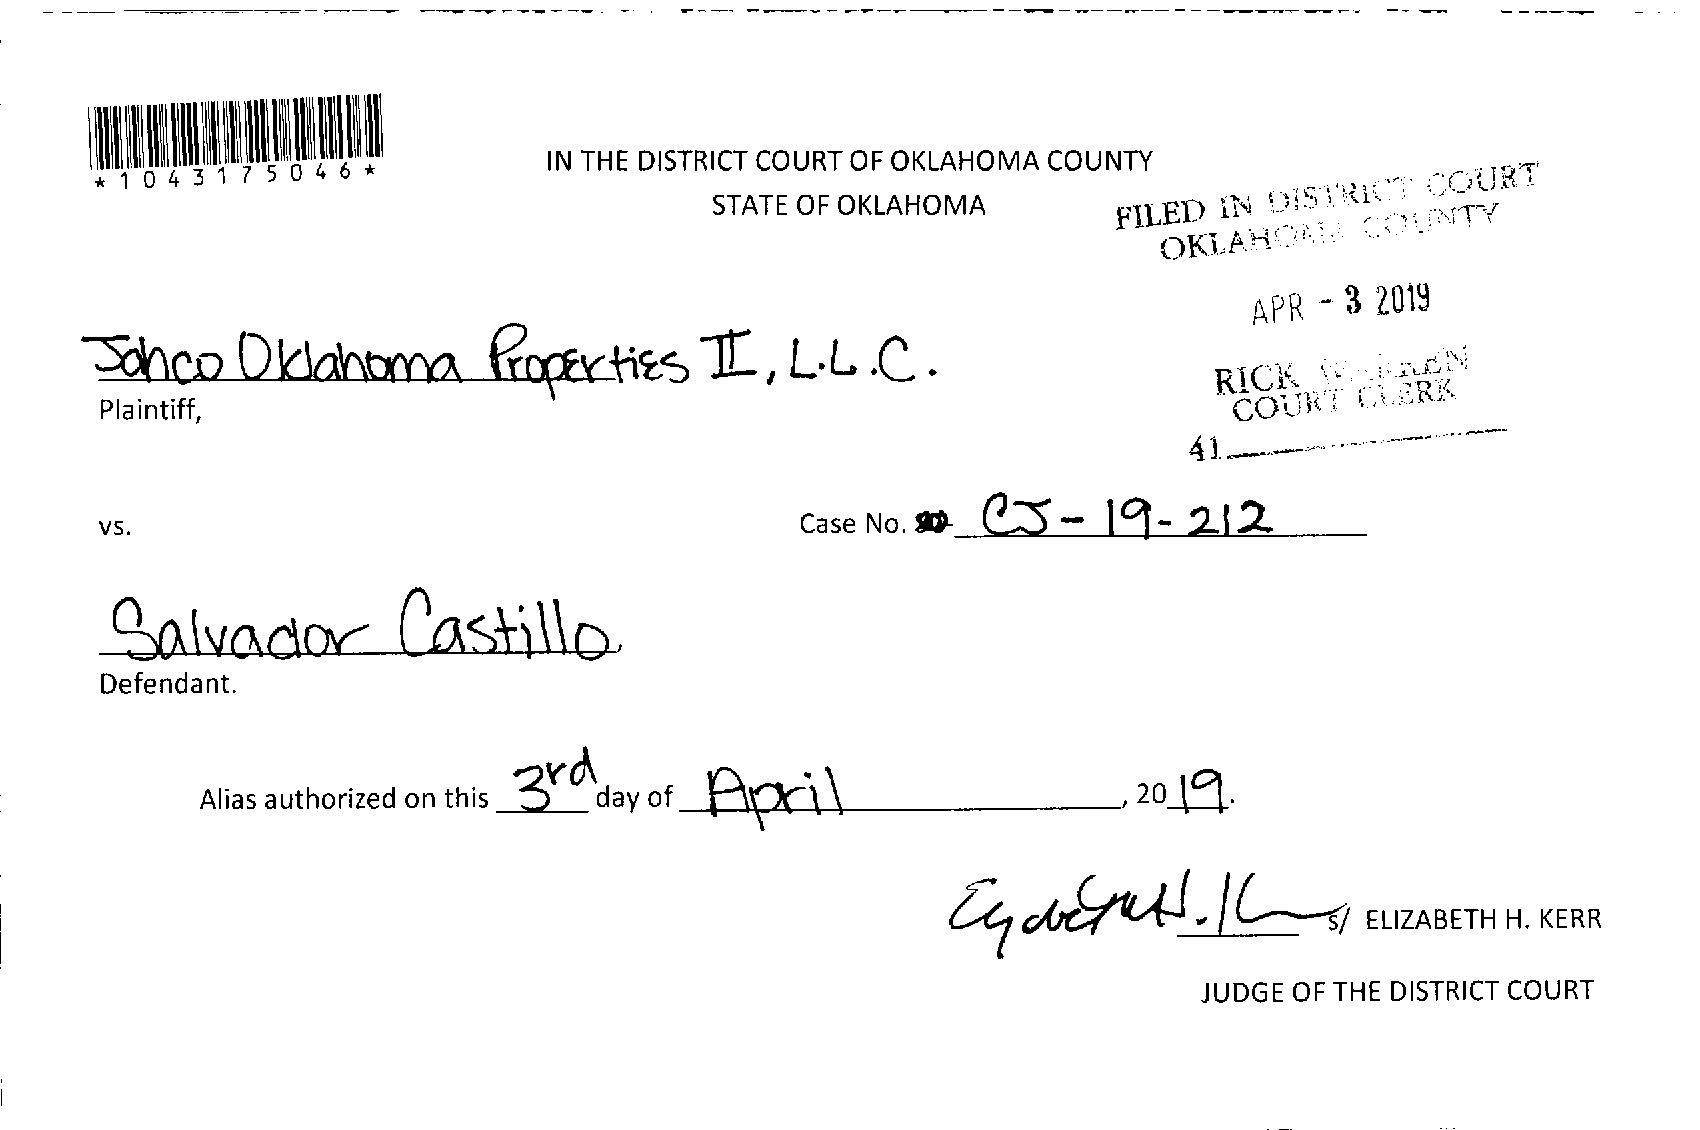 *1043175046*
IN THE DISTRICT COURT OF OKLAHOMA COUNTY
STATE OF OKLAHOMA
FILED IN DISTRICT COURT
OKLAHOMA COUNTY
APR - 3 2019
RICK WARREN
COURT CLERK
41
Jahco Oklahoma Properties II, L.L.C.
Plaintiff,
vs.
Case No. CJ-19-212
Salvador Castillo
Defendant.
Alias authorized on this 3rd day of April, 2019.
s/ ELIZABETH H. KERR
JUDGE OF THE DISTRICT COURT